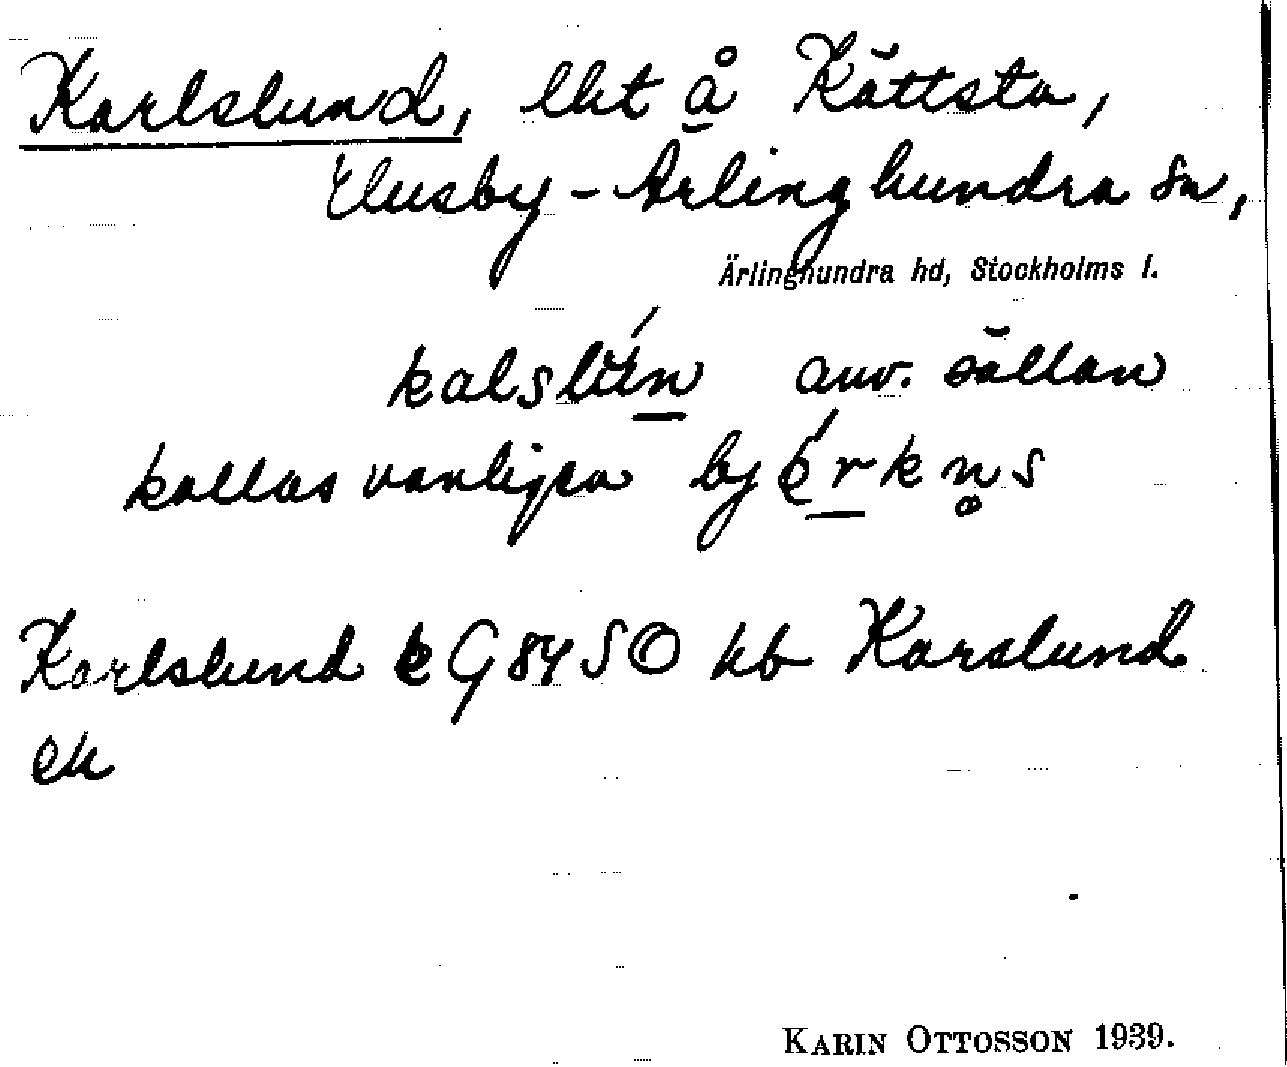 Karlslund, lht å Kättsta,
Husby-Ärlinghundra sn,
Ärlinghundra hd, Stockholms l.
kalslún anv. sällan
kallas vanligen bjö́rkn̥s
Karlslund k G 84 SO hb Karslund
ek
KARIN OTTOSSON 1939.